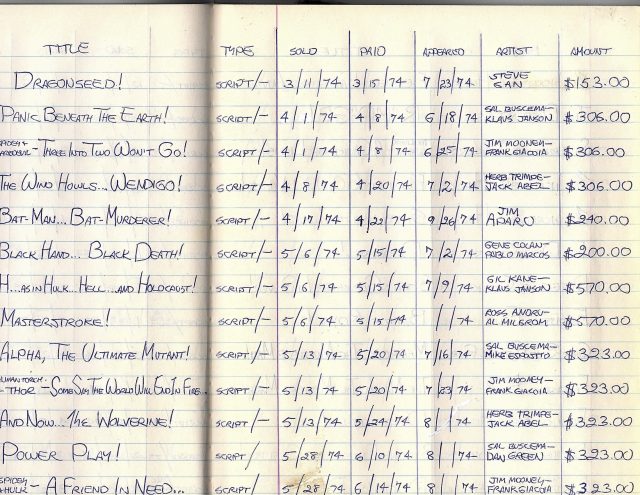 TITLE TYPE SOLD PAID APPEARED ARTIST AMOUNT
DRAGONSEED! SCRIPT/- 3/11/74 3/15/74 7/23/74 STEVE GAN $153.00
PANIC BENEATH THE EARTH! SCRIPT/- 4/1/74 4/8/74 6/18/74 SAL BUSCEMA- KLAUS JANSON $306.00
SPIDEY & - THREE INTO TWO WON'T GO! SCRIPT/- 4/1/74 4/8/74 6/25/74 JIM MOONEY- FRANK GIACOIA $306.00
THE WIND HOWLS... WENDIGO! SCRIPT/- 4/8/74 4/20/74 7/2/74 HERB TRIMPE- JACK ABEL $306.00
BAT-MAN... BAT-MURDERER! SCRIPT/- 4/17/74 4/22/74 9/26/74 JIM APARO $240.00
BLACK HAND... BLACK DEATH! SCRIPT/- 5/6/74 5/15/74 7/2/74 GENE COLAN- PABLO MARCOS $200.00
H...AS IN HULK...HELL...AND HOLOCAUST! SCRIPT/- 5/6/74 5/15/74 7/9/74 GIL KANE- KLAUS JANSON $570.00
MASTERSTROKE! SCRIPT/- 5/6/74 5/15/74 / /74 ROSS ANDRU- AL MILGROM $570.00
ALPHA, THE ULTIMATE MUTANT! SCRIPT/- 5/13/74 5/20/74 7/16/74 SAL BUSCEMA- MIKE ESPOSITO $323.00
HUMAN TORCH- THOR - SOME SAY THE WORLD WILL END IN FIRE... SCRIPT/- 5/13/74 5/20/74 7/23/74 JIM MOONEY- FRANK GIACOIA $323.00
AND NOW...THE WOLVERINE! SCRIPT/- 5/13/74 5/24/74 8/ /74 HERB TRIMPE- JACK ABEL $323.00
POWER PLAY! SCRIPT/ 5/28/74 6/10/74 8/ /74 SAL BUSCEMA- DAN GREEN $323.00
SPIDEY & HULK - A FRIEND IN NEED... SCRIPT/- 5/28/74 6/14/74 8/ /74 JIM MOONEY- FRANK GIACOIA $323.00